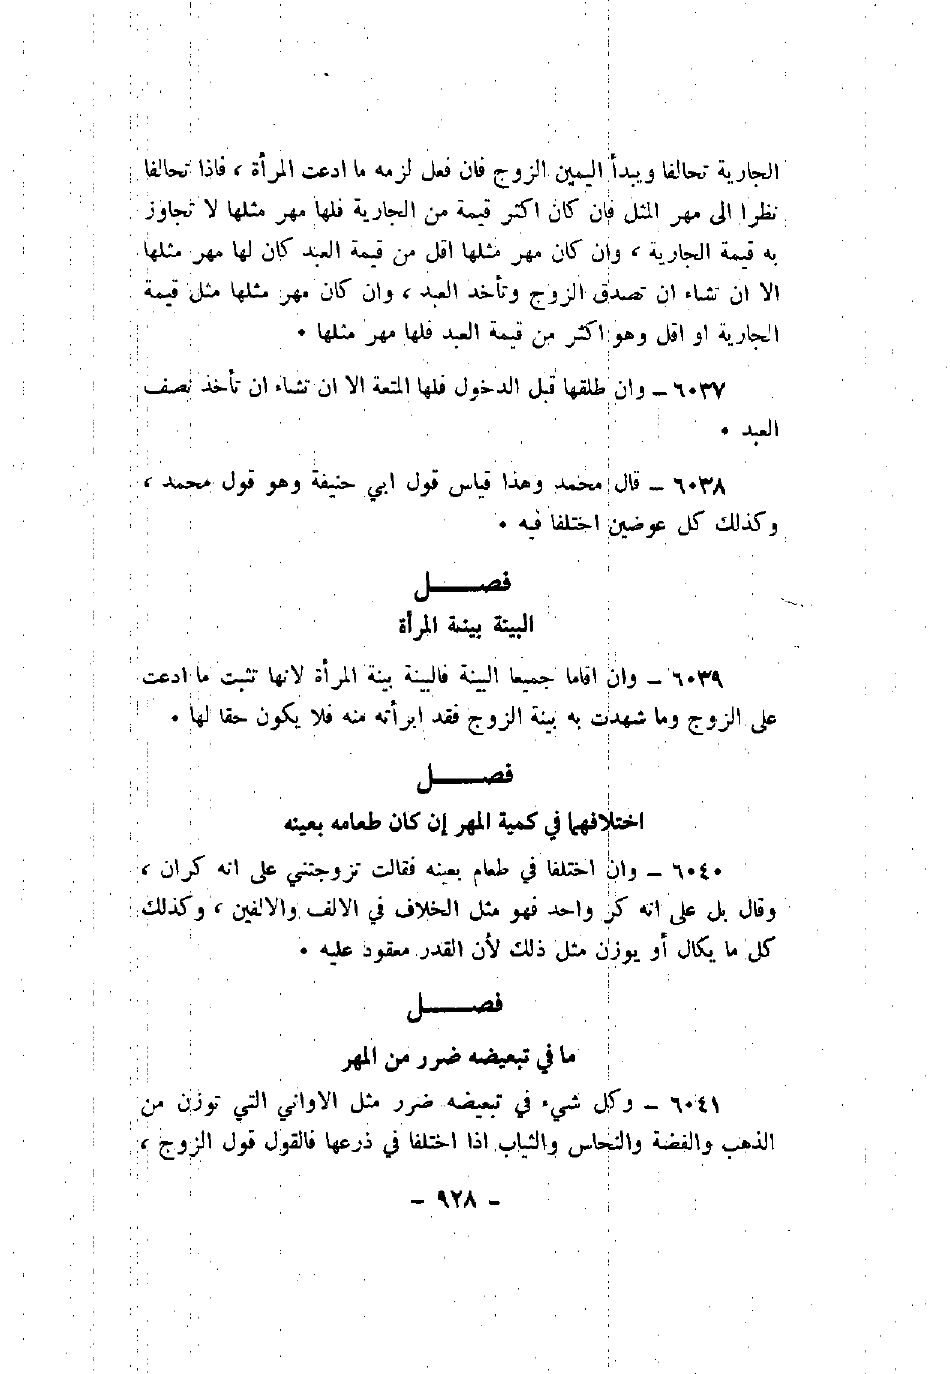 الجارية تحالفا ويبدأ اليمين الزوج فان فعل لزمه ما ادعت المرأة ، فاذا تحالفا
نظرا الى مهر المثل فان كان اكثر قيمة من الجارية فلها مهر مثلها لا تجاوز
به قيمة الجارية ، وان كان مهر مثلها اقل من قيمة العبد كان لها مهر مثلها
الا ان تشاء ان تصدق الزوج وتأخد العبد ، وان كان مهر مثلها مثل قيمة
الجارية او اقل وهو اكثر من قيمة العبد فلها مهر مثلها ٠
٦٠٣٧ – وان طلقها قبل الدخول فلها المتعة الا ان تشاء ان تأخذ نصف
العبد ٠
٦٠٣٨ – قال محمد وهذا قياس قول ابي حنيفة وهو قول محمد ،
وكذلك كل عوضين اختلفا فيه ٠
فصـــــل
البينة بينة المرأة
٦٠٣٩ – وان اقاما جميعا البينة فالبينة بينة المرأة لانها تثبت ما ادعت
على الزوج وما شهدت به بينة الزوج فقد ابرأته منه فلا يكون حقا لها ٠
فصـــــل
اختلافهما في كمية المهر إن كان طعامه بعينه
٦٠٤٠ – وان اختلفا في طعام بعينه فقالت تزوجتني على انه كران ،
وقال بل على انه كر واحد فهو مثل الخلاف في الالف والالفين ، وكذلك
كل ما يكال أو يوزن مثل ذلك لأن القدر معقود عليه ٠
فصـــــل
ما في تبعيضه ضرر من المهر
٦٠٤١ – وكل شيء في تبعيضه ضرر مثل الاواني التي توزن من
الذهب والفضة والنحاس والثياب اذا اختلفا في ذرعها فالقول قول الزوج ،
– ٩٢٨ –